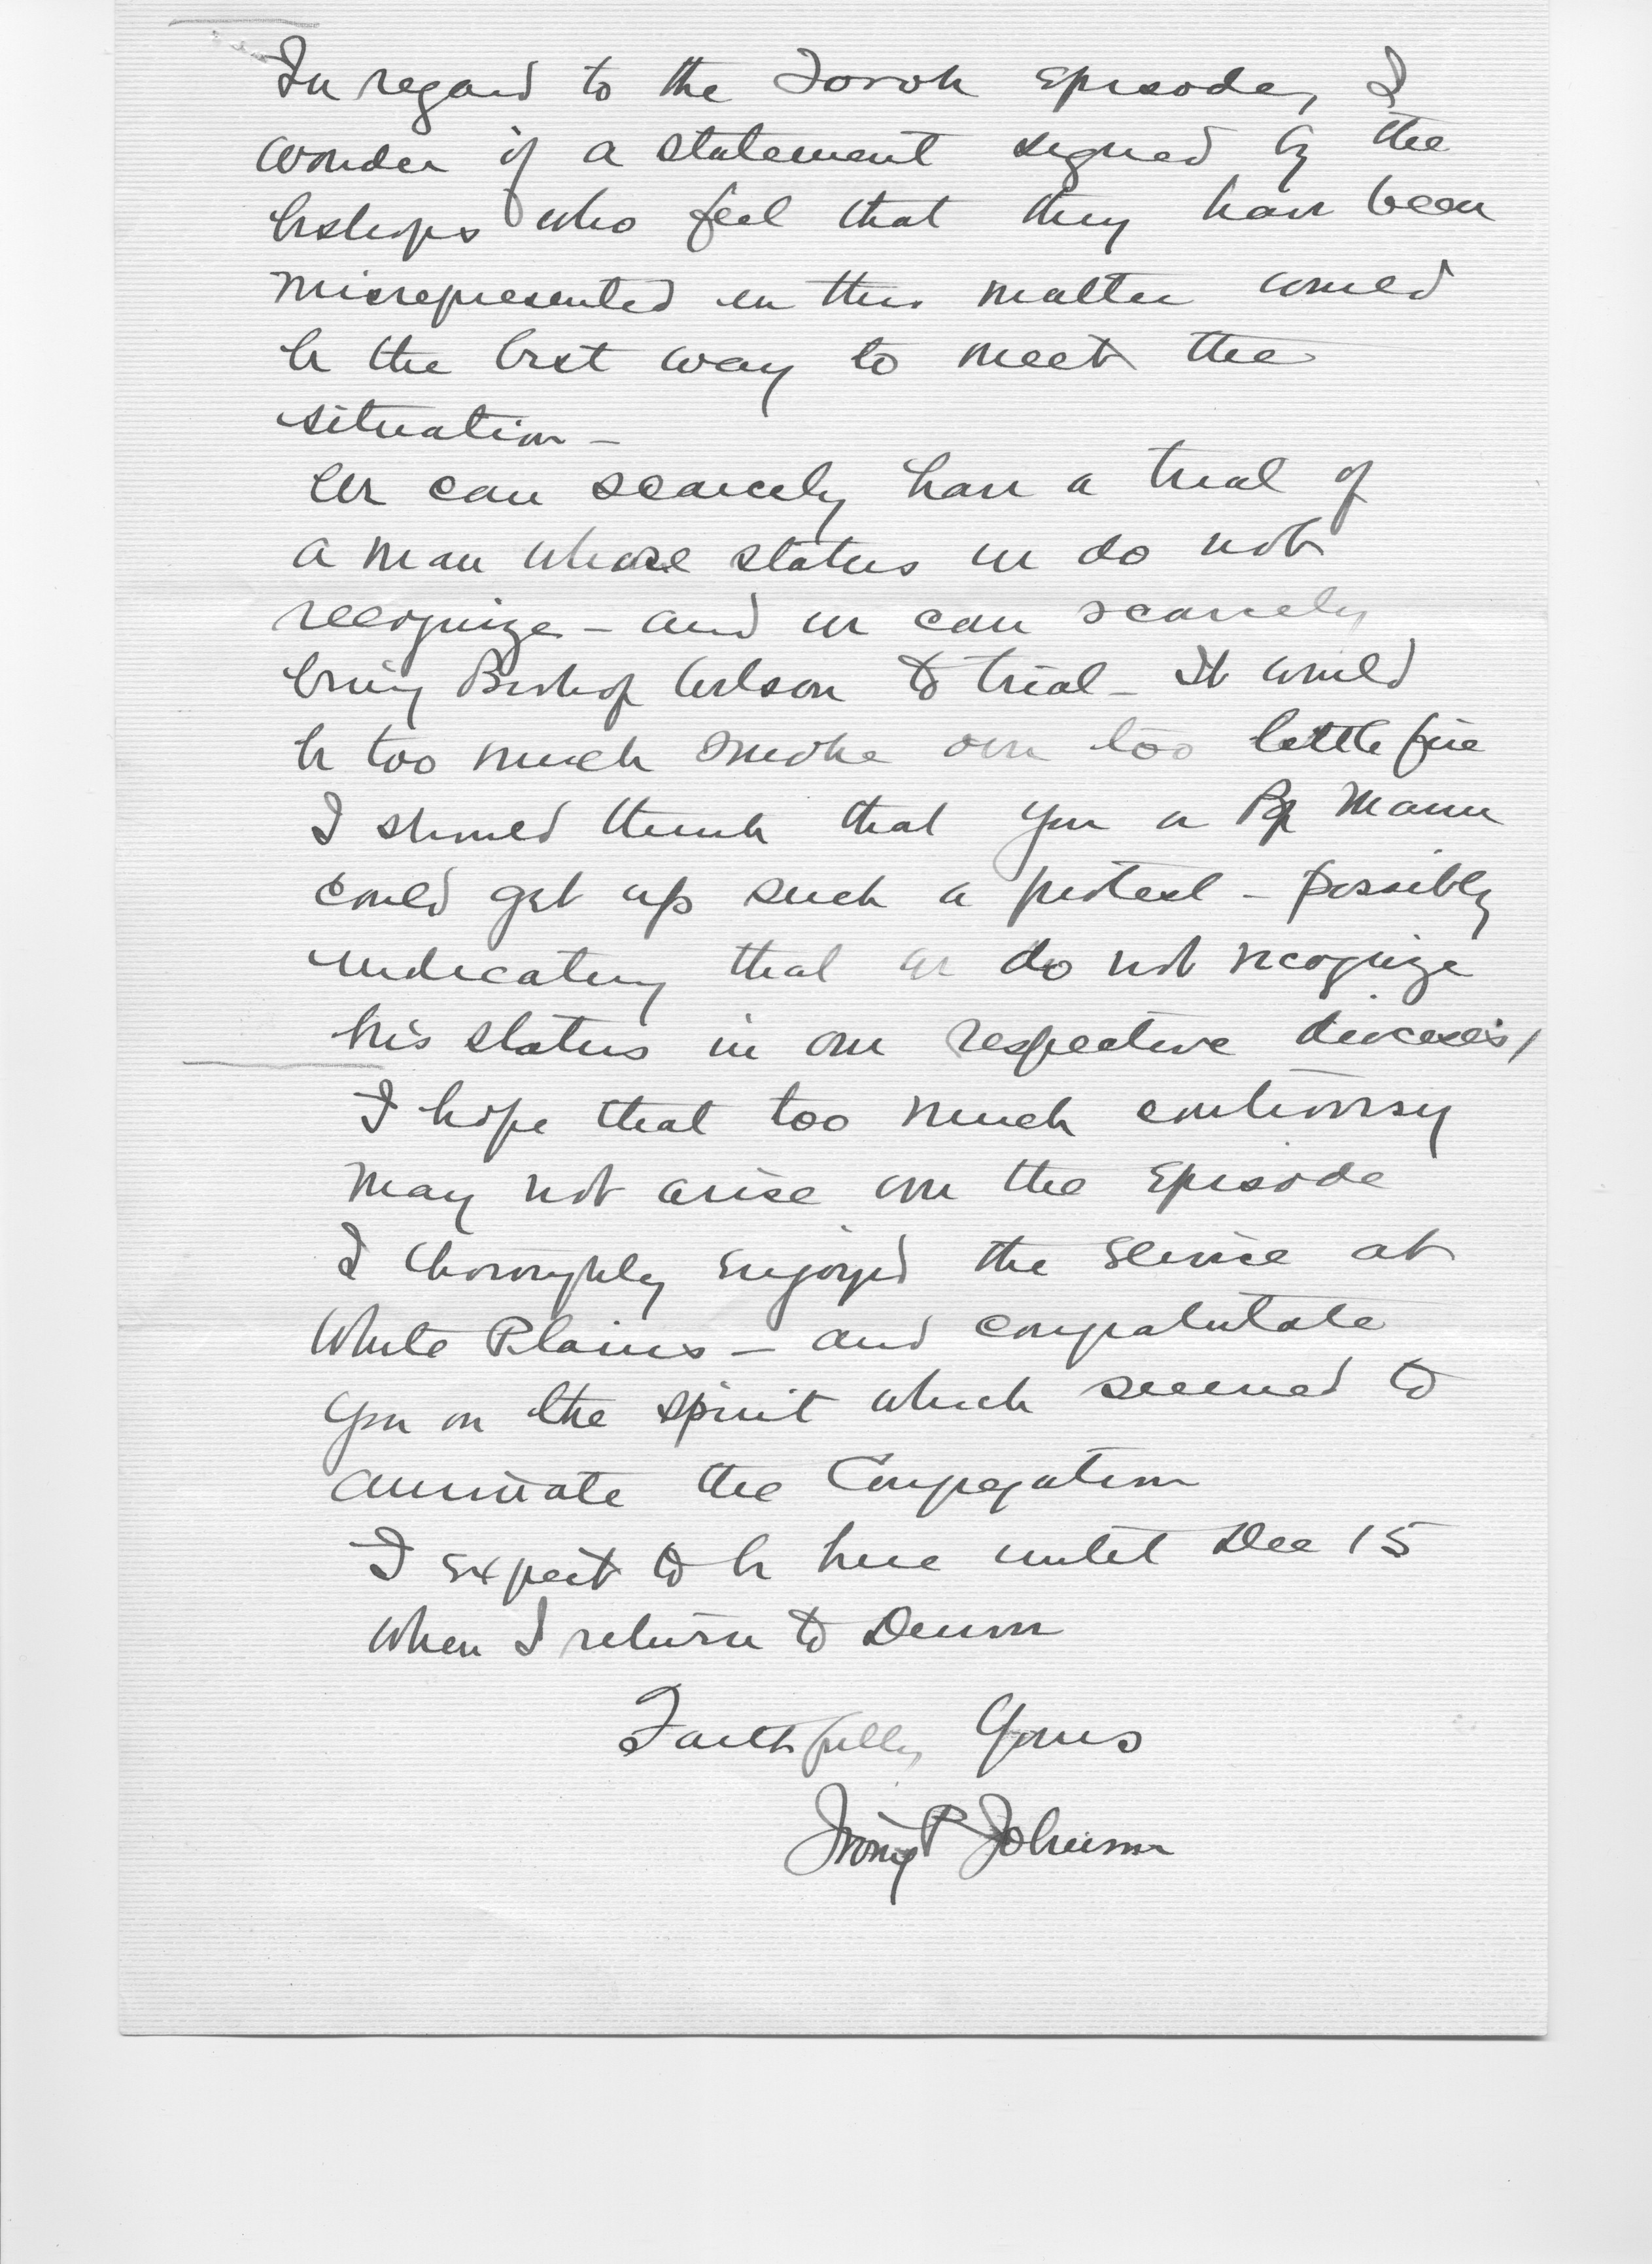 In regard to the Torok Episode, I
wonder if a statement signed by the
bishops who feel that they have been
misrepresented in this matter would
be the best way to meet the
situation –
We can scarcely have a trial of
a man whose status we do not
recognize – and we can scarcely
bring Bishop Wilson to trial – It would
be too much smoke over too little fire
I should think that you or Bp Mann
could get up such a protest – possibly
indicating that we do not recognize
his status in our respective dioceses,
I hope that too much controversy
may not arise over the Episode
I thoroughly enjoyed the service at
White Plains – and congratulate
you on the spirit which seemed to
animate the Congregation
I expect to be here until Dec 15
when I return to Denver
Faithfully Yours
Irving P Johnson